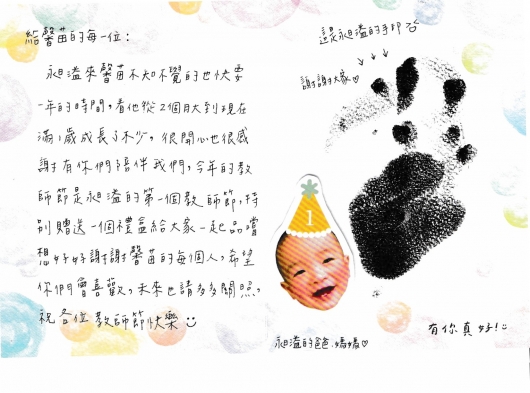 給馨苗的每一位：
昶溢來馨苗不知不覺的也快要
一年的時間，看他從2個月大到現在
滿1歲成長了不少，很開心也很感
謝有你們陪伴我們，今年的教
師節是昶溢的第一個教師節，特
別贈送一個禮盒給大家一起品嚐
想好好謝謝馨苗的每個人，希望
你們會喜歡，未來也請多多關照，
祝各位教師節快樂
這是昶溢的手印
謝謝大家♡
1
有你真好！
昶溢的爸爸、媽媽♡